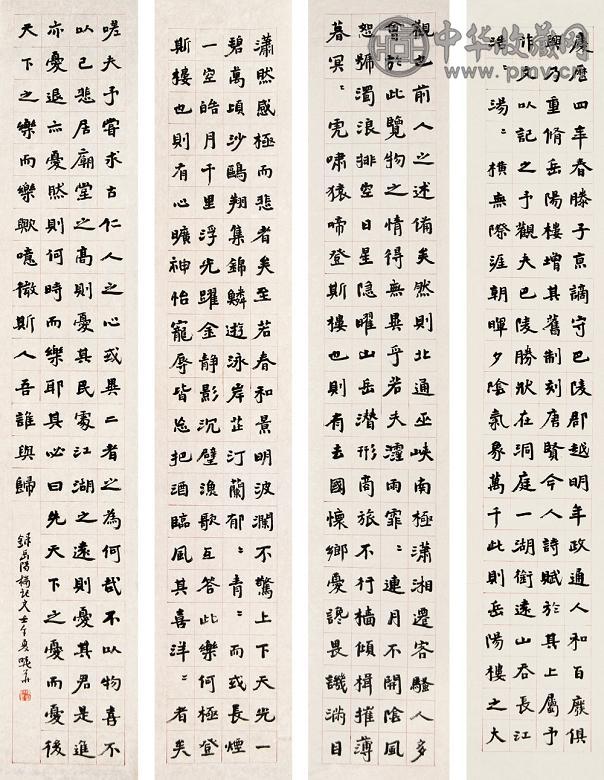 慶曆四年春滕子京謫守巴陵郡越明年政通人和百廢俱
興乃重修岳陽樓增其舊制刻唐賢今人詩賦於其上屬予
作文以記之予觀夫巴陵勝狀在洞庭一湖銜遠山吞長江
浩:湯:橫無際涯朝暉夕陰氣象萬千此則岳陽樓之大
觀也前人之述備矣然則北通巫峽南極瀟湘遷客騷人多
會於此覽物之情得無異乎若夫霪雨霏:連月不開陰風
怒號濁浪排空日星隱曜山岳潛形商旅不行檣傾楫摧薄
暮冥:虎嘯猿啼登斯樓也則有去國懷鄉憂讒畏譏滿目
瀟然感極而悲者矣至若春和景明波瀾不驚上下天光一
碧萬頃沙鷗翔集錦鱗遊泳岸芷汀蘭郁:青:而或長煙
一空皓月千里浮光躍金靜影沉璧漁歌互答此樂何極登
斯樓也則有心曠神怡寵辱皆忘把酒臨風其喜洋:者矣
嗟夫予嘗求古仁人之心或異二者之為何哉不以物喜不
以己悲居廟堂之高則憂其民處江湖之遠則憂其君是進
亦憂退亦憂然則何時而樂耶其必曰先天下之憂而憂後
天下之樂而樂歟噫微斯人吾誰與歸
錄岳陽樓記文壬午夏
中华收藏网
www.pmv.cn